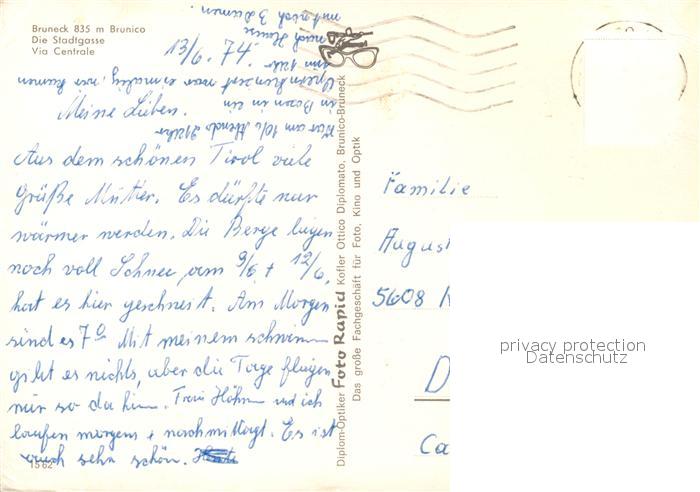 Bruneck 835 m Brunico
Die Stadtgasse
Via Centrale
13/6. 74.
Meine Lieben.
Aus dem schönen Tirol viele
Grüße Mutter. Es dürfte nur
wärmer werden. Die Berge liegen
noch voll Schnee, am 9/6 + 12/6,
hat es hier geschneit. Am Morgen
sind es 7° Mit meinem schwimm
gibt es nichts, aber die Tage fliegen
nur so dahin. Frau Höhn und ich
laufen morgens + nachmittagt. Es ist
auch sehr schön.
1562
War am 10/6 Abends 21 Uhr
in Bozen in ein
Opernkonzert war einmalig, wir kamen
nach Hause
mit noch 3 Damen.
Diplom-Optiker Foto Rapid Kofler Ottico Diplomato, Brunico-Bruneck
Das große Fachgeschäft für Foto, Kino und Optik
Familie
August
5608
D
Ca
privacy protection
Datenschutz